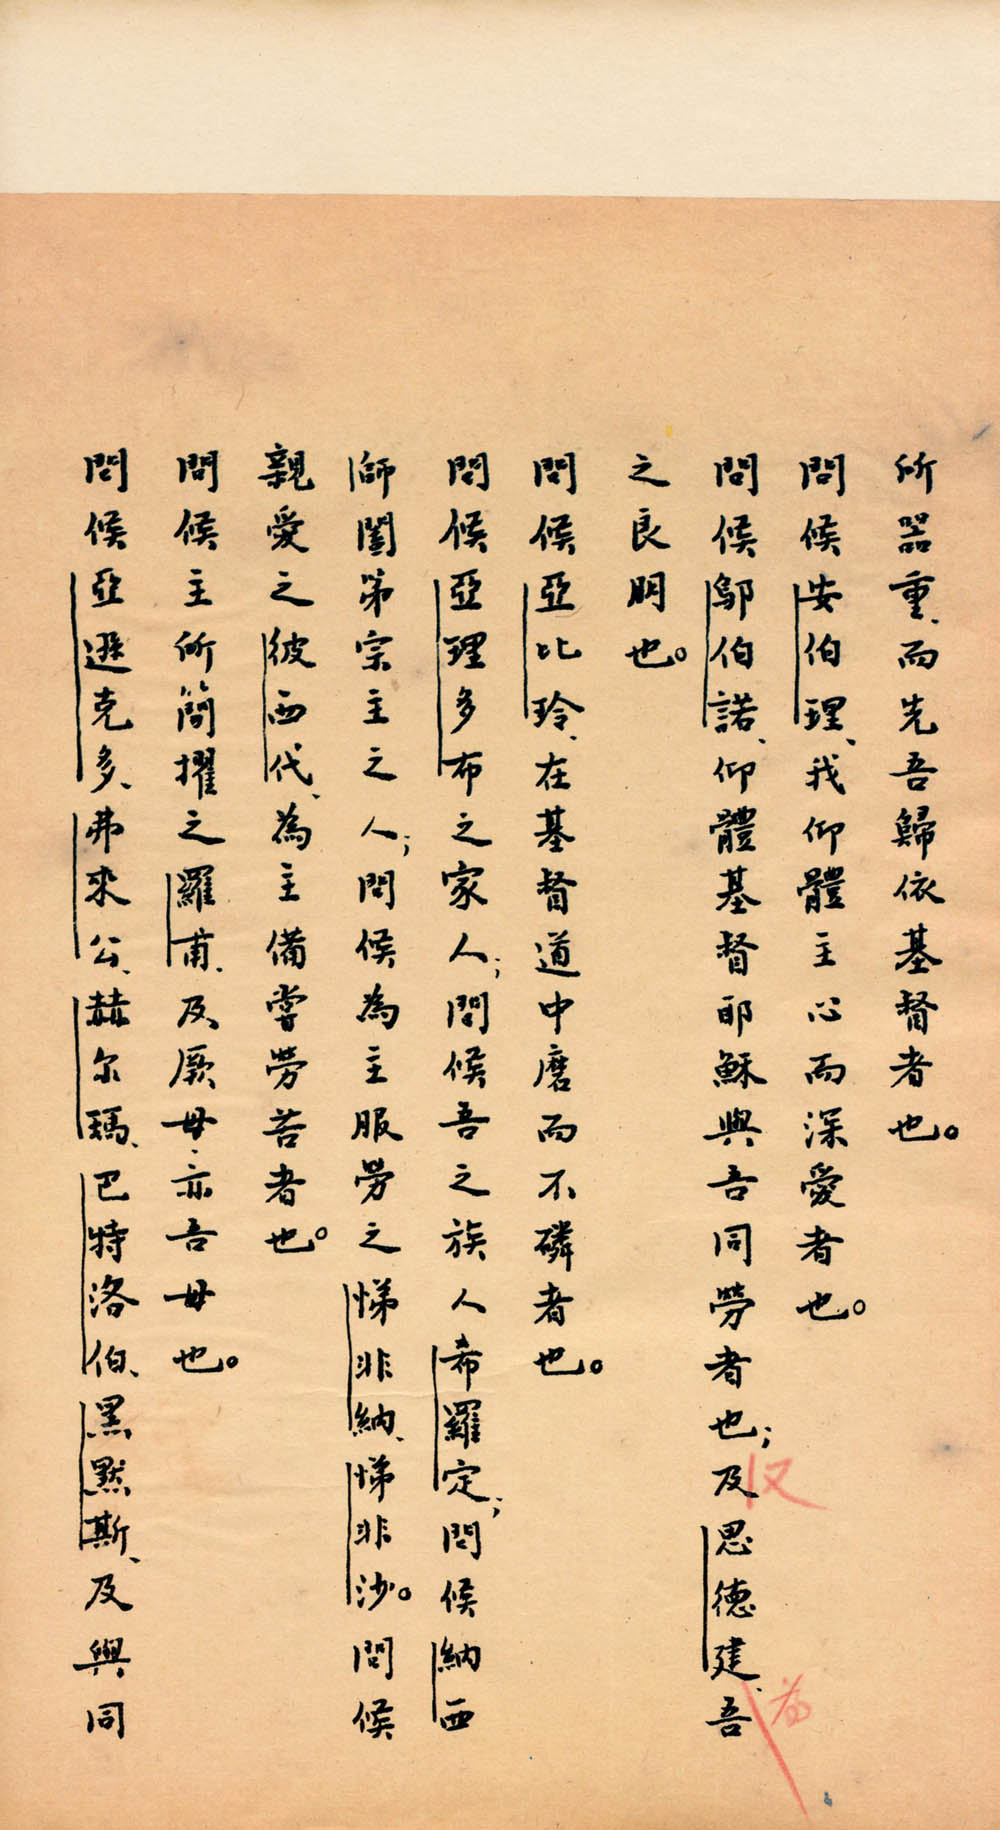 所器重、而先吾歸依基督者也。
問候安伯理、我仰體主心而深愛者也。
問候鄔伯諾、仰體基督耶穌與吾同勞者也；及思德建、吾
又
為
之良朋也。
問候亞比玲、在基督道中磨而不磷者也。
問候亞理多布之家人；問候吾之族人希羅定；問候納西
師闔第宗主之人；問候為主服勞之悌非納、悌非沙。問候
親愛之彼西代、為主備嘗勞苦者也。
問候主所簡擢之羅甫、及厥母、亦吾母也。
問候亞遜克多、弗來公、赫尔瑪、巴特洛伯、黑默斯、及與同